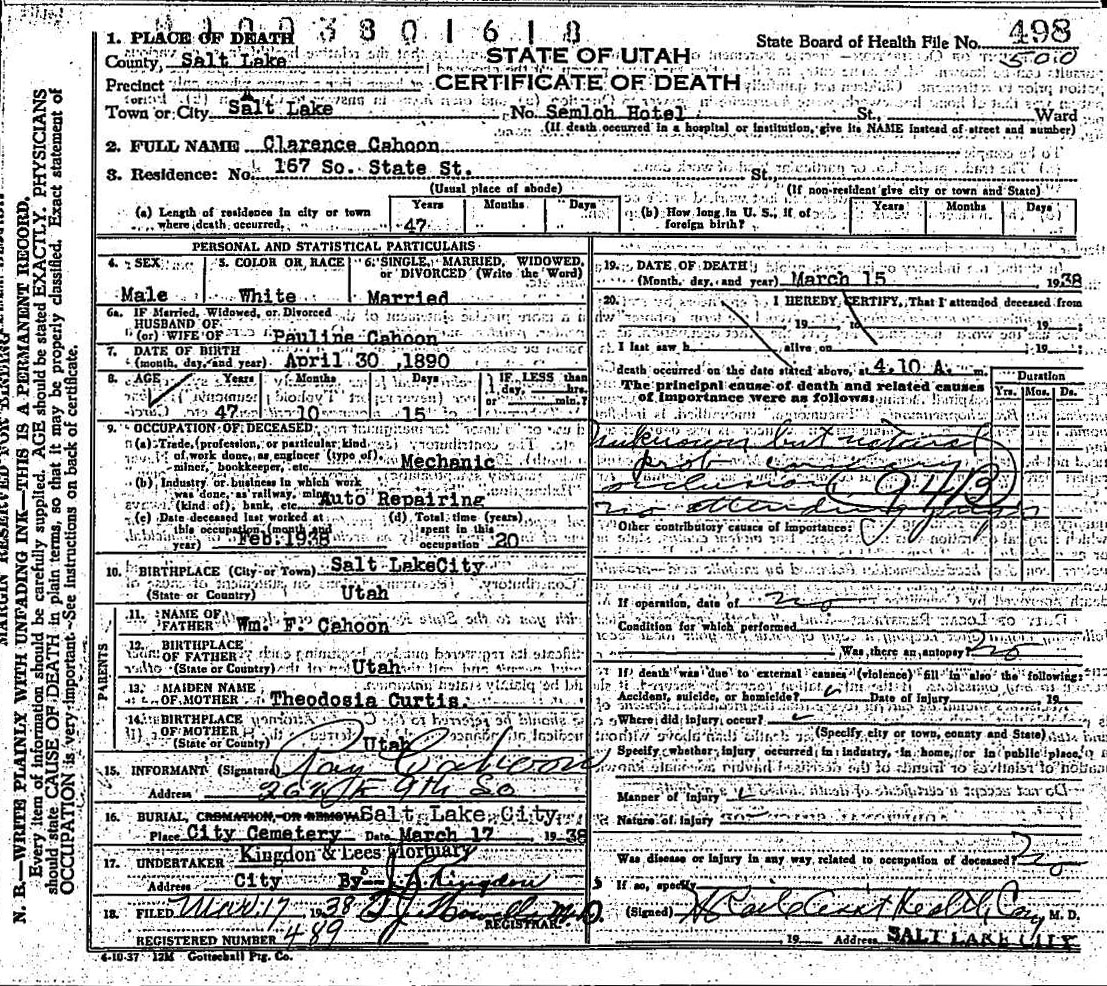 1. PLACE OF DEATH
State Board of Health File No. 498
500
County, Salt Lake
STATE OF UTAH
Precinct
CERTIFICATE OF DEATH
Town or City Salt Lake No. Semloh Hotel St., Ward
(If death occurred in a hospital or institution, give its NAME instead of street and number)
2. FULL NAME Clarence Cahoon
3. Residence: No. 167 So. State St. St.,
(Usual place of abode) (If non-resident give city or town and State)
(a) Length of residence in city or town where death occurred, Years 47 Months Days
(b) How long in U. S., if of foreign birth? Years Months Days
PERSONAL AND STATISTICAL PARTICULARS
4. SEX Male
5. COLOR OR RACE White
6. SINGLE, MARRIED, WIDOWED, or DIVORCED (Write the Word) Married
6a. IF Married, Widowed, or Divorced
HUSBAND OF
(or) WIFE OF Pauline Cahoon
7. DATE OF BIRTH
(month, day, and year) April 30, 1890
8. AGE Years 47 Months 10 Days 15 IF LESS than day, hrs. or min.?
9. OCCUPATION OF DECEASED
(a) Trade, profession, or particular kind
of work done, as engineer (type of),
miner, bookkeeper, etc. Mechanic
(b) Industry or business in which work
was done, as railway, mine
(kind of), bank, etc. Auto Repairing
(c) Date deceased last worked at
this occupation (month and
year) Feb. 1938
(d) Total time (years)
spent in this
occupation 20
10. BIRTHPLACE (City or Town) Salt LakeCity
(State or Country) Utah
PARENTS
11. NAME OF
FATHER Wm. F. Cahoon
12. BIRTHPLACE
OF FATHER
(State or Country) Utah
13. MAIDEN NAME
OF MOTHER Theodosia Curtis.
14. BIRTHPLACE
OF MOTHER
(State or County) Utah
15. INFORMANT (Signature) Ray Cahoon
Address 9th So
16. BURIAL, CREMATION, OR REMOVAL Salt Lake City
Place City Cemetery Date March 17 1938
17. UNDERTAKER Kingdon & Lees Mortuary
Address City By J. A. Kingdon
18. FILED Mar. 17 1938 M.D.
REGISTRAR.
REGISTERED NUMBER 489
4-10-37 12M Gottschall Ptg. Co.
19. DATE OF DEATH
(Month, day, and year) March 15 1938
20. I HEREBY CERTIFY, That I attended deceased from
19 to 19
I last saw h alive on 19
death occurred on the date stated above, at 4.10 A. m.
The principal cause of death and related causes
of importance were as follows:
Duration
Yrs. Mos. Ds.
unknown but natural
prob coronary
occlusion 94B
no attending
Other contributory causes of importance:
If operation, date of no
Condition for which performed
Was there an autopsy? no
If death was due to external causes (violence) fill in also the following:
Accident, suicide, or homicide? Date of Injury 19
Where did injury occur?
(Specify city or town, county and State)
Specify whether injury occurred in industry, in home, or in public place,
Manner of Injury
Nature of injury
Was disease or injury in any way related to occupation of deceased? no
If so, specify
(Signed) M. D.
19 Address SALT LAKE CITY
MARGIN RESERVED FOR BINDING
N. B.—WRITE PLAINLY WITH UNFADING INK—THIS IS A PERMANENT RECORD.
Every item of information should be carefully supplied. AGE should be stated EXACTLY. PHYSICIANS
should state CAUSE OF DEATH in plain terms, so that it may be properly classified. Exact statement of
OCCUPATION is very important. See instructions on back of certificate.